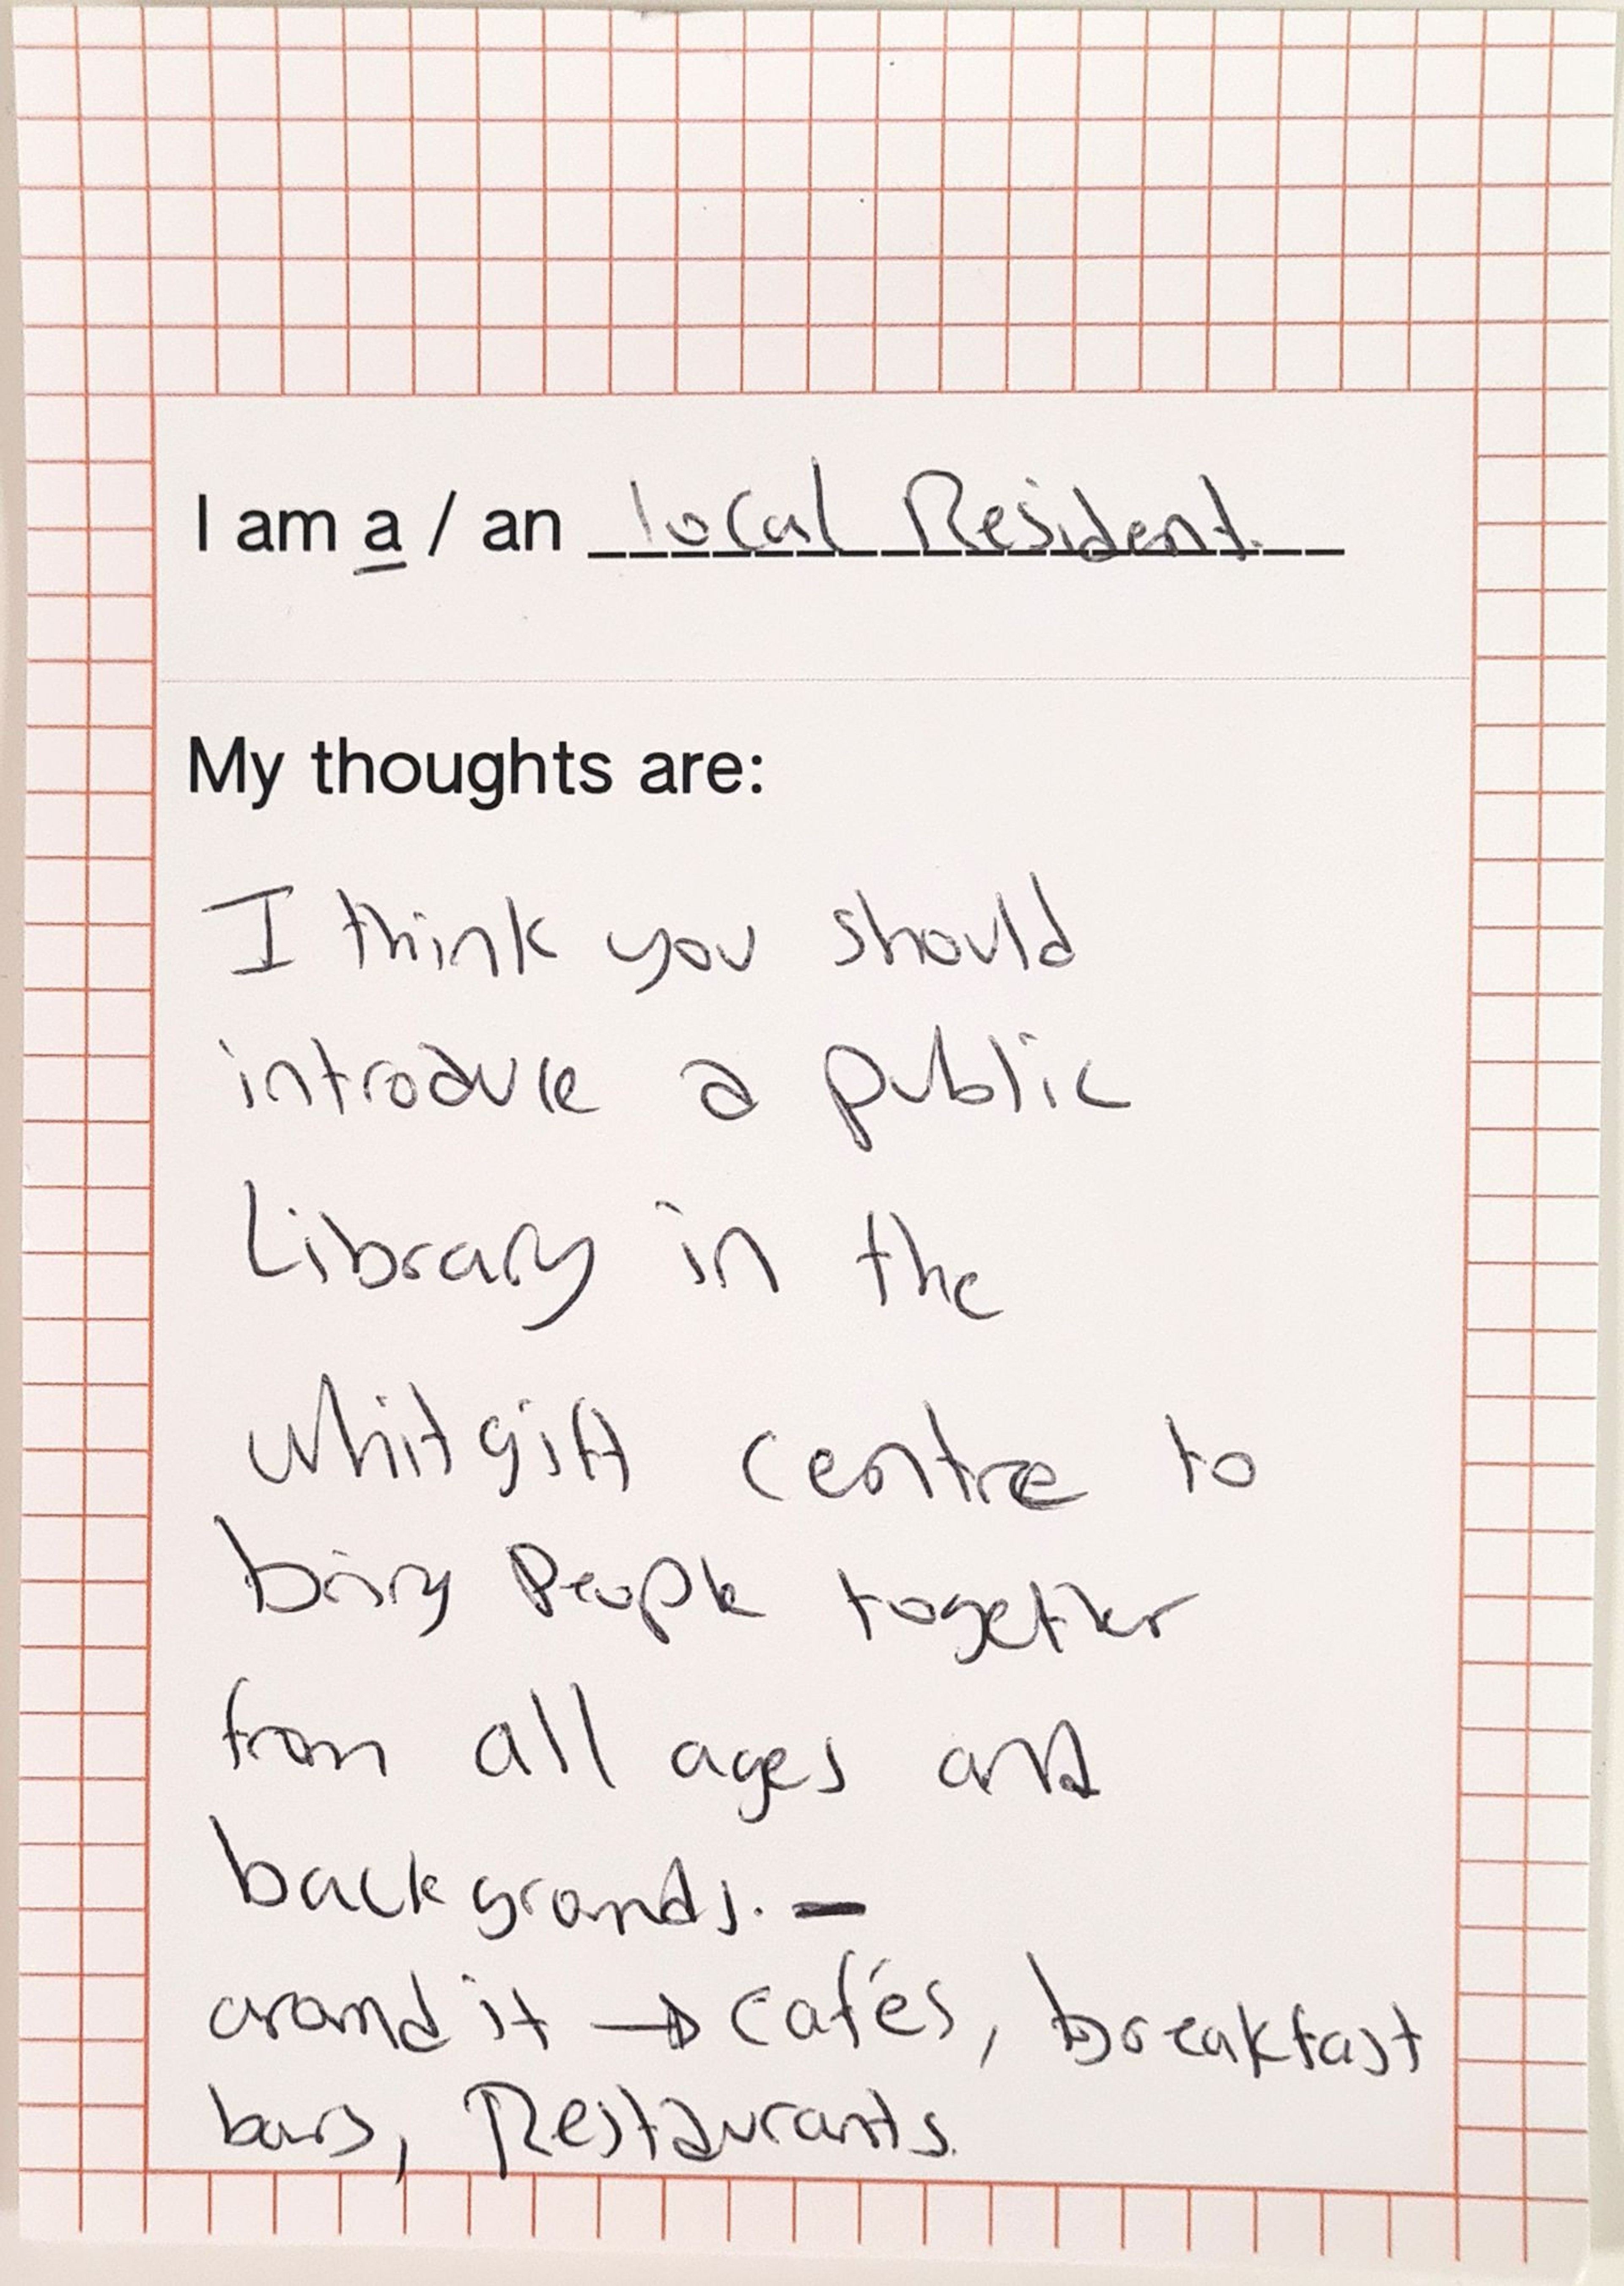 I am a / an local Resident.
My thoughts are:
I think you should
introduce a public
Library in the
whitgift centre to
bring People together
from all ages and
backgrounds. -
around it → cafés, breakfast
bars, Restaurants.